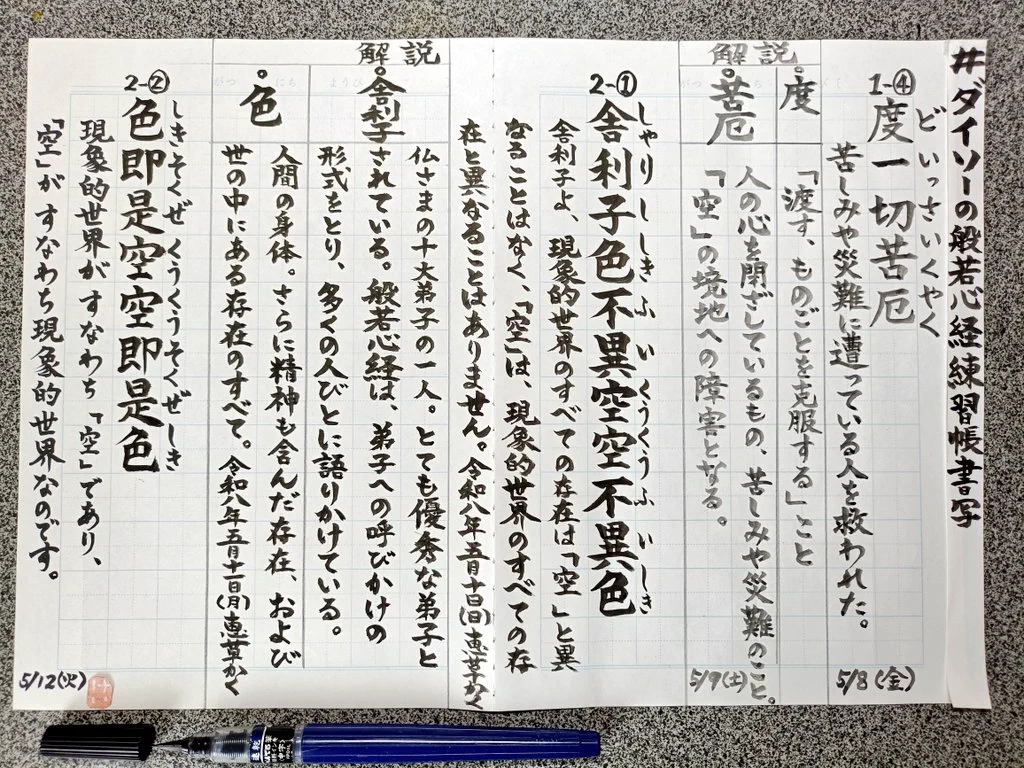 #ダイソーの般若心経練習帳書写
1-④
どいっさいくやく
度一切苦厄
苦しみや災難に遭っている人を救われた。
5/8(金)
解説
。度
「渡す、ものごとを克服する」こと
。苦厄
人の心を閉ざしているもの、苦しみや災難のこと。
「空」の境地への障害となる。
5/9(土)
2-①
しゃりししきふいくうくうふいしき
舎利子色不異空空不異色
舎利子よ、現象的世界のすべての存在は「空」と異
なることはなく、「空」は、現象的世界のすべての存
在と異なることはありません。令和八年五月十日(日)恵草かく
解説
。舎利子
仏さまの十大弟子の一人。とても優秀な弟子と
されている。般若心経は、弟子への呼びかけの
形式をとり、多くの人びとに語りかけている。
。色
人間の身体。さらに精神も含んだ存在、および
世の中にある存在のすべて。令和八年五月十一日(月)恵草かく
2-②
しきそくぜくうくうそくぜしき
色即是空空即是色
現象的世界がすなわち「空」であり、
「空」がすなわち現象的世界なのです。
5/12(火)